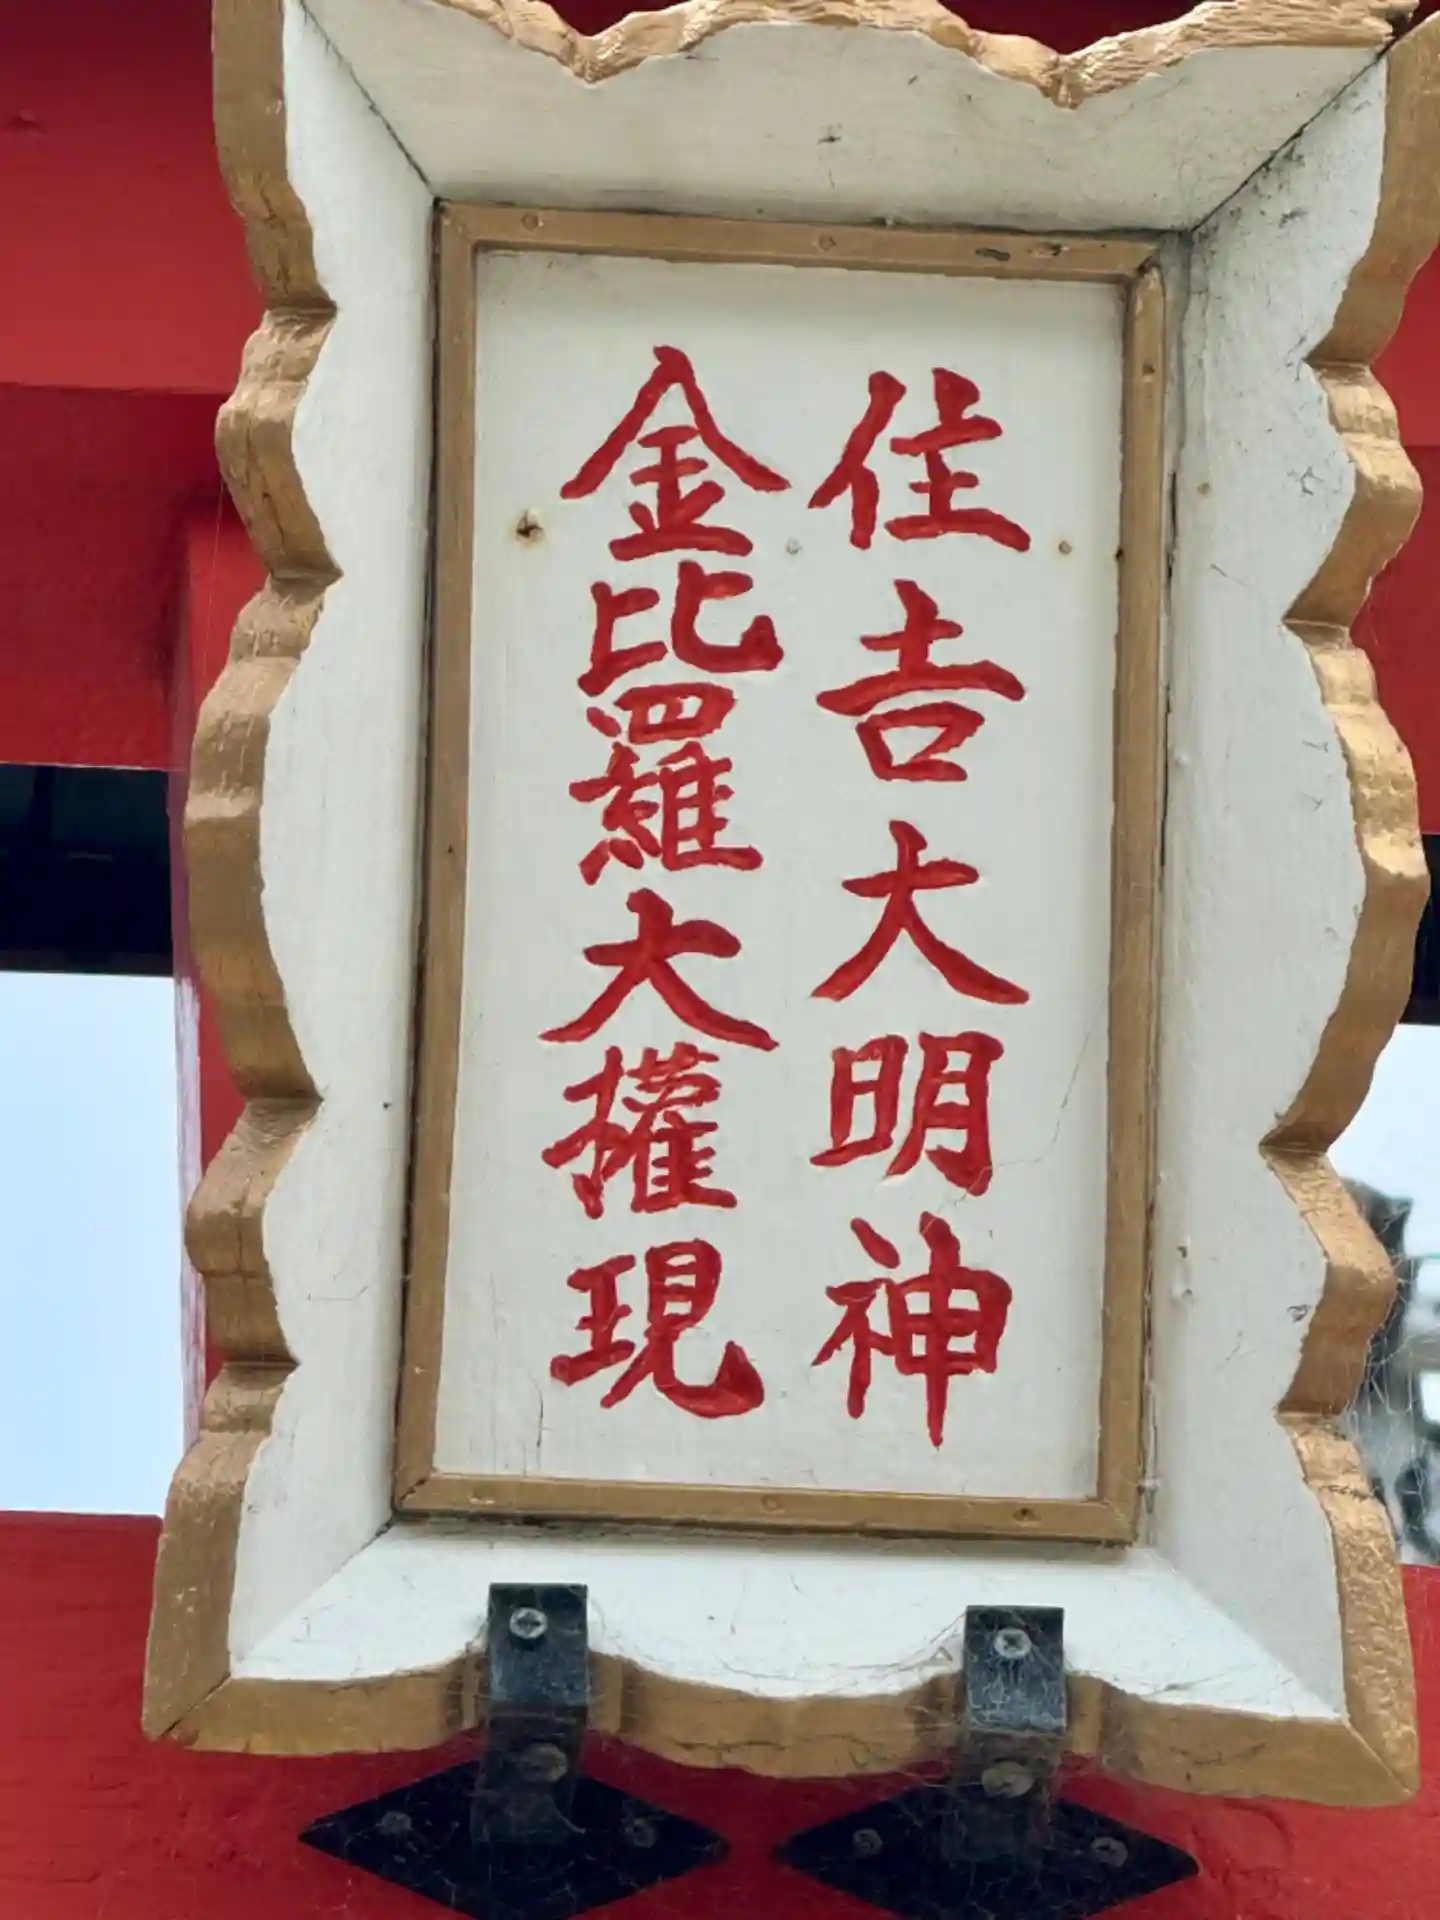 住吉大明神
金比羅大権現